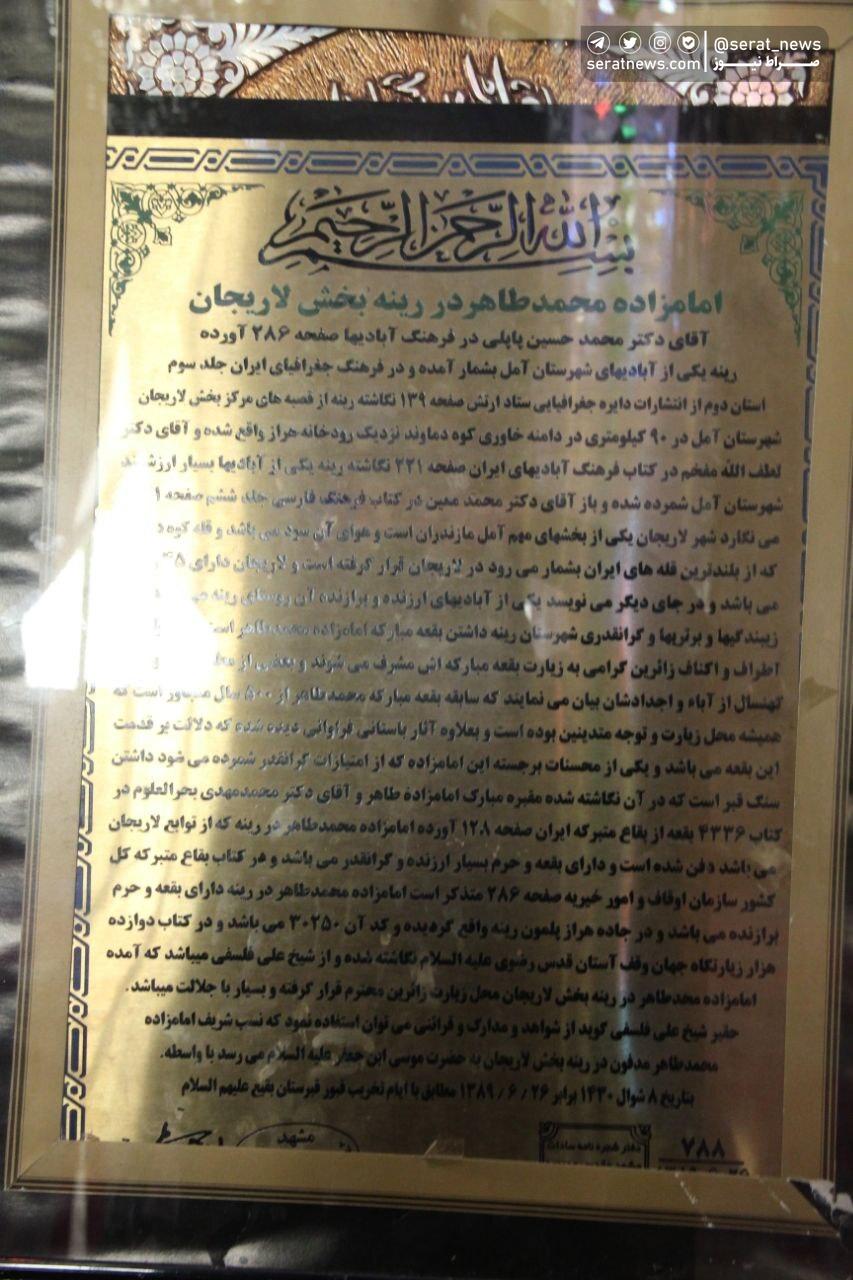 @serat_news
seratnews.com | صراط نیوز
بسم الله الرحمن الرحیم
امامزاده محمدطاهر در رینه بخش لاریجان
آقای دکتر محمد حسین پاپلی در فرهنگ آبادیها صفحه ۲۸۶ آورده
رینه یکی از آبادیهای شهرستان آمل بشمار آمده و در فرهنگ جغرافیای ایران جلد سوم
استان دوم از انتشارات دایره جغرافیایی ستاد ارتش صفحه ۱۳۹ نگاشته رینه از قصبه های مرکز بخش لاریجان
شهرستان آمل در ۹۰ کیلومتری در دامنه خاوری کوه دماوند نزدیک رودخانه هراز واقع شده و آقای دکتر
لطف الله مفخم در کتاب فرهنگ آبادیهای ایران صفحه ۲۲۱ نگاشته رینه یکی از آبادیها بسیار ارزشمند
شهرستان آمل شمرده شده و باز آقای دکتر محمد معین در کتاب فرهنگ فارسی جلد ششم صفحه
می نگارد شهر لاریجان یکی از بخشهای مهم آمل مازندران است و هوای آن سرد می باشد و قله کوه
که از بلندترین قله های ایران بشمار می رود در لاریجان قرار گرفته است و لاریجان دارای ۴۵
می باشد و در جای دیگر می نویسد یکی از آبادیهای ارزنده و برازنده آن روستای رینه
زیبندگیها و برتریها و گرانقدری شهرستان رینه داشتن بقعه مبارکه امامزاده محمدطاهر است
اطراف و اکناف زائرین گرامی به زیارت بقعه مبارکه اش مشرف می شوند و بعضی از
کهنسال از آباء و اجدادشان بیان می نمایند که سابقه بقعه مبارکه محمدطاهر از ۵۰۰ سال متجاوز است که
همیشه محل زیارت و توجه متدینین بوده است و بعلاوه آثار باستانی فراوانی دیده شده که دلالت بر قدمت
این بقعه می باشد و یکی از محسنات برجسته این امامزاده که از امتیازات گرانقدر شمرده می شود داشتن
سنگ قبر است که در آن نگاشته شده مقبره مبارک امامزاده طاهر و آقای دکتر محمدمهدی بحرالعلوم در
کتاب ۴۳۳۶ بقعه از بقاع متبرکه ایران صفحه ۱۲۸ آورده امامزاده محمدطاهر در رینه که از توابع لاریجان
می باشد دفن شده است و دارای بقعه و حرم بسیار ارزنده و گرانقدر می باشد و در کتاب بقاع متبرکه کل
کشور سازمان اوقاف و امور خیریه صفحه ۲۸۶ متذکر است امامزاده محمدطاهر در رینه دارای بقعه و حرم
برازنده می باشد و در جاده هراز پلمون رینه واقع گردیده و کد آن ۳۰۲۵۰ می باشد و در کتاب دوازده
هزار زیارتگاه جهان وقف آستان قدس رضوی علیه السلام نگاشته شده و از شیخ علی فلسفی میباشد که آمده
امامزاده محدطاهر در رینه بخش لاریجان محل زیارت زائرین محترم قرار گرفته و بسیار با جلالت میباشد.
حقیر شیخ علی فلسفی گوید از شواهد و مدارک و قرائنی می توان استفاده نمود که نسب شریف امامزاده
محمدطاهر مدفون در رینه بخش لاریجان به حضرت موسی ابن جعفر علیه السلام می رسد با واسطه.
بتاریخ ۸ شوال ۱۴۳۰ برابر ۲۶ / ۶ / ۱۳۸۹ مطابق با ایام تخریب قبور قبرستان بقیع علیهم السلام
مشهد
دفتر شجره نامه سادات
۷۸۸